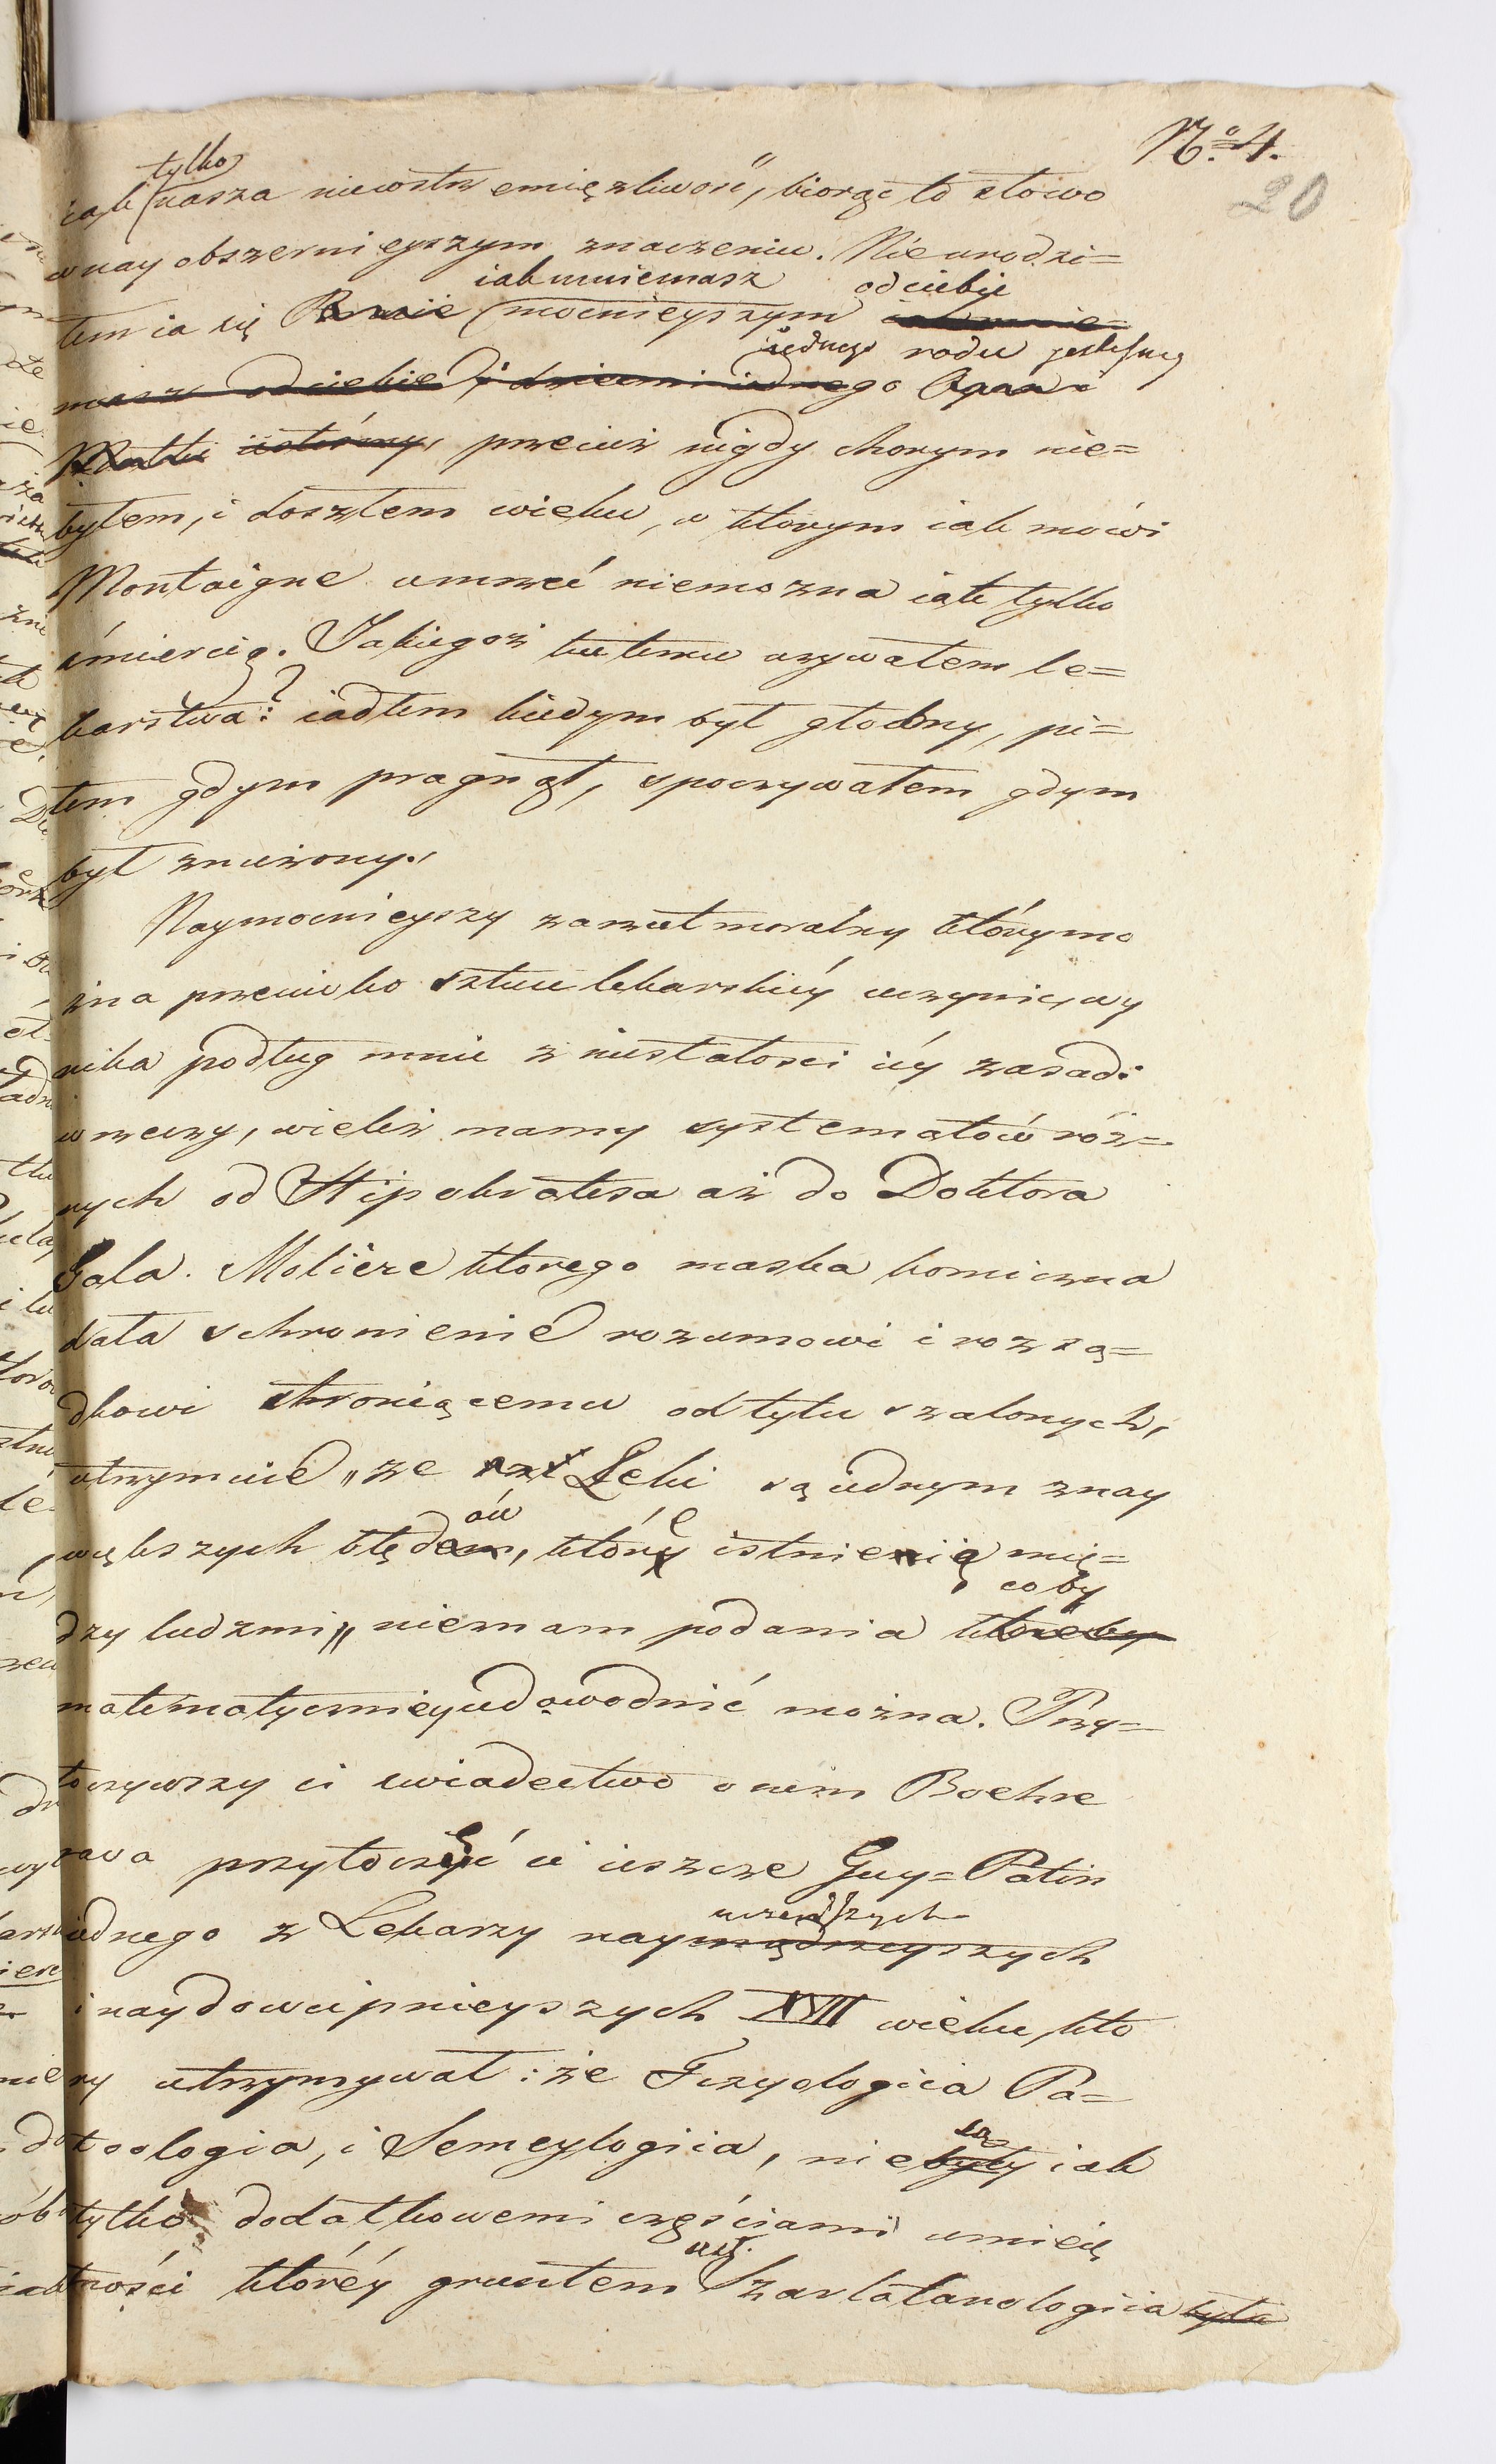 Nº 4.
20
tylko
iak nasza niewstrzemięzliwość, biorąc to słowo
w nay obszernieyszym znaczeniu. Nie urodzi=
iak mniemasz od ciebie
łem ia się mocnieyszym iak mnie=
iednego rodu jestesmy
masz od ciebie i dziećmi iednego Oyca i
Matki iesteśmy, przecież nigdy chorym nie=
byłem, i doszłem wieku, w ktorym iak mowi
Montaigne umrzeć niemozna iak tylko
śmiercią. Jakiegoż ku temu uzywałem le=
karstwa? iadłem kiedym był głodny, pi=
łem gdym pragnął, spoczywałem gdym
był znużony.
Naymocnieyszy zarzut moralny którymo
żna przeciwko sztuce lekarskiéy uczynić, wy
nika podług mnie z niestałosci iéy zasad:
w rzeczy, wieleż mamy systematów róż=
nych od Hipokratesa aż do Doktora
Gala. Moliere ktorego maska komiczna
dała schronienie rozumowi i rozsą=
dkowi chroniącemu od tylu szalonych,
utrzymuie „ze Leki są iednym z nay
ów e
większych błędem, który istnieią mię=
co by
dzy ludzmi„ niemam podania któreby
matematyczniey udowodnić można. Przy=
toczywszy ci swiadectwo o nim Boehre
rawa przytoczyć ci ieszcze Guy=Patin
uczeńszych
iednego z Lekarzy naymądrzeyszych
i naydowcipnieyszych XVII wieku, kto
ry utrzymywał: że Fizyologiia Pa=
są
toologia, i Semeylogiia, niebyły iak
tylko dodatkowemi częściami umieię
iest.
tności któréy gruntem Szarlatanologiia była